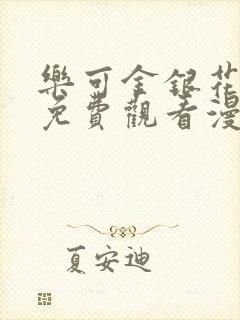 樂可金銀花
免費觀看漫
夏安迪